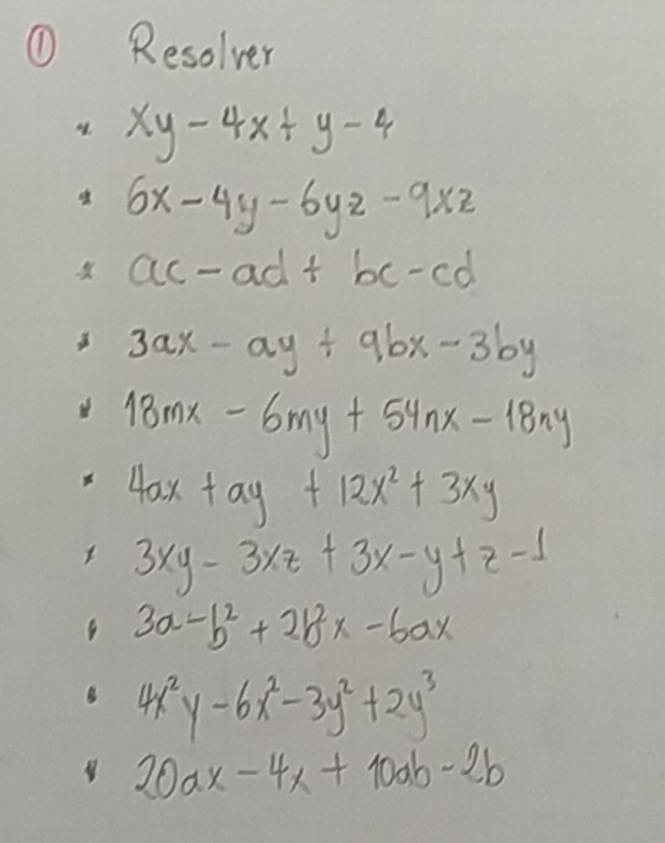 ① Resolver
* xy - 4x + y - 4
* 6x - 4y - 6yz - 9xz
* ac - ad + bc - cd
* 3ax - ay + 9bx - 3by
* 18mx - 6my + 54nx - 18ny
* 4ax + ay + 12x² + 3xy
* 3xy - 3xz + 3x - y + z - 1
* 3a - b² + 2b²x - 6ax
* 4x²y - 6x² - 3y² + 2y³
* 20ax - 4x + 10ab - 2b